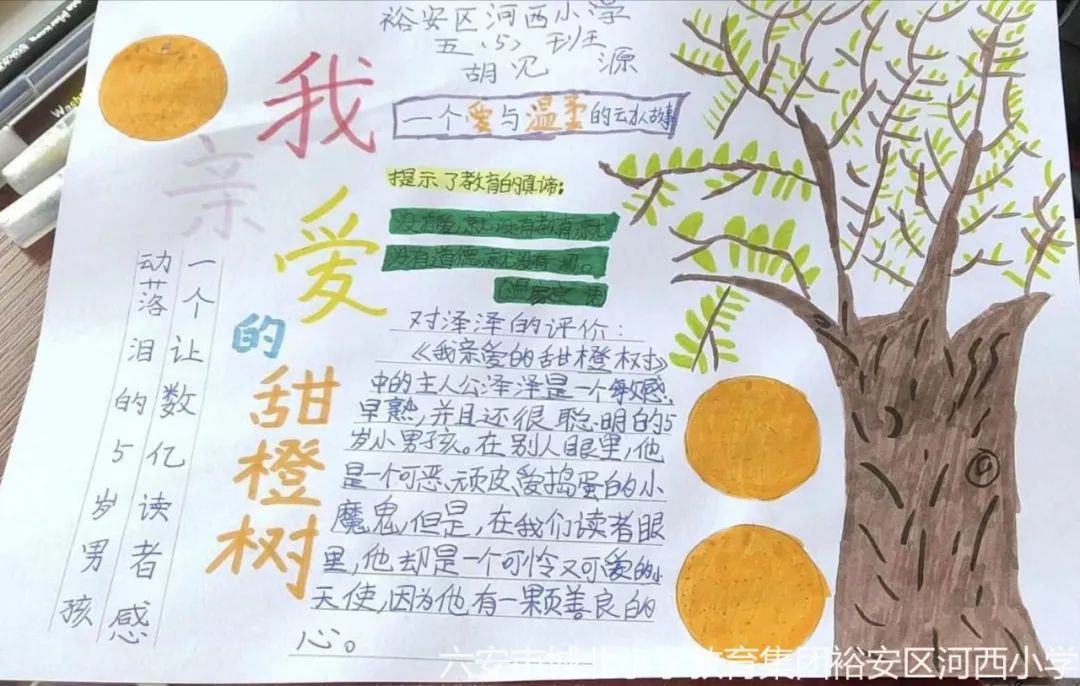 裕安区河西小学
五（5）班
胡 源
我
亲
爱
的
甜
橙
树
一个爱与温柔的动人故事
提示了教育的真谛：
没有爱就没有教育，
没有道德，就没有
温家宝
一个让数亿读者感
动落泪的5岁男孩
对泽泽的评价：
《我亲爱的甜橙树》
中的主人公泽泽是一个敏感、
早熟，并且还很聪明的5
岁小男孩。在别人眼里，他
是一个可恶、顽皮、爱捣蛋的小
魔鬼，但是，在我们读者眼
里，他却是一个可怜又可爱的小
天使，因为他有一颗善良的
心。
教育集团裕安区河西小学